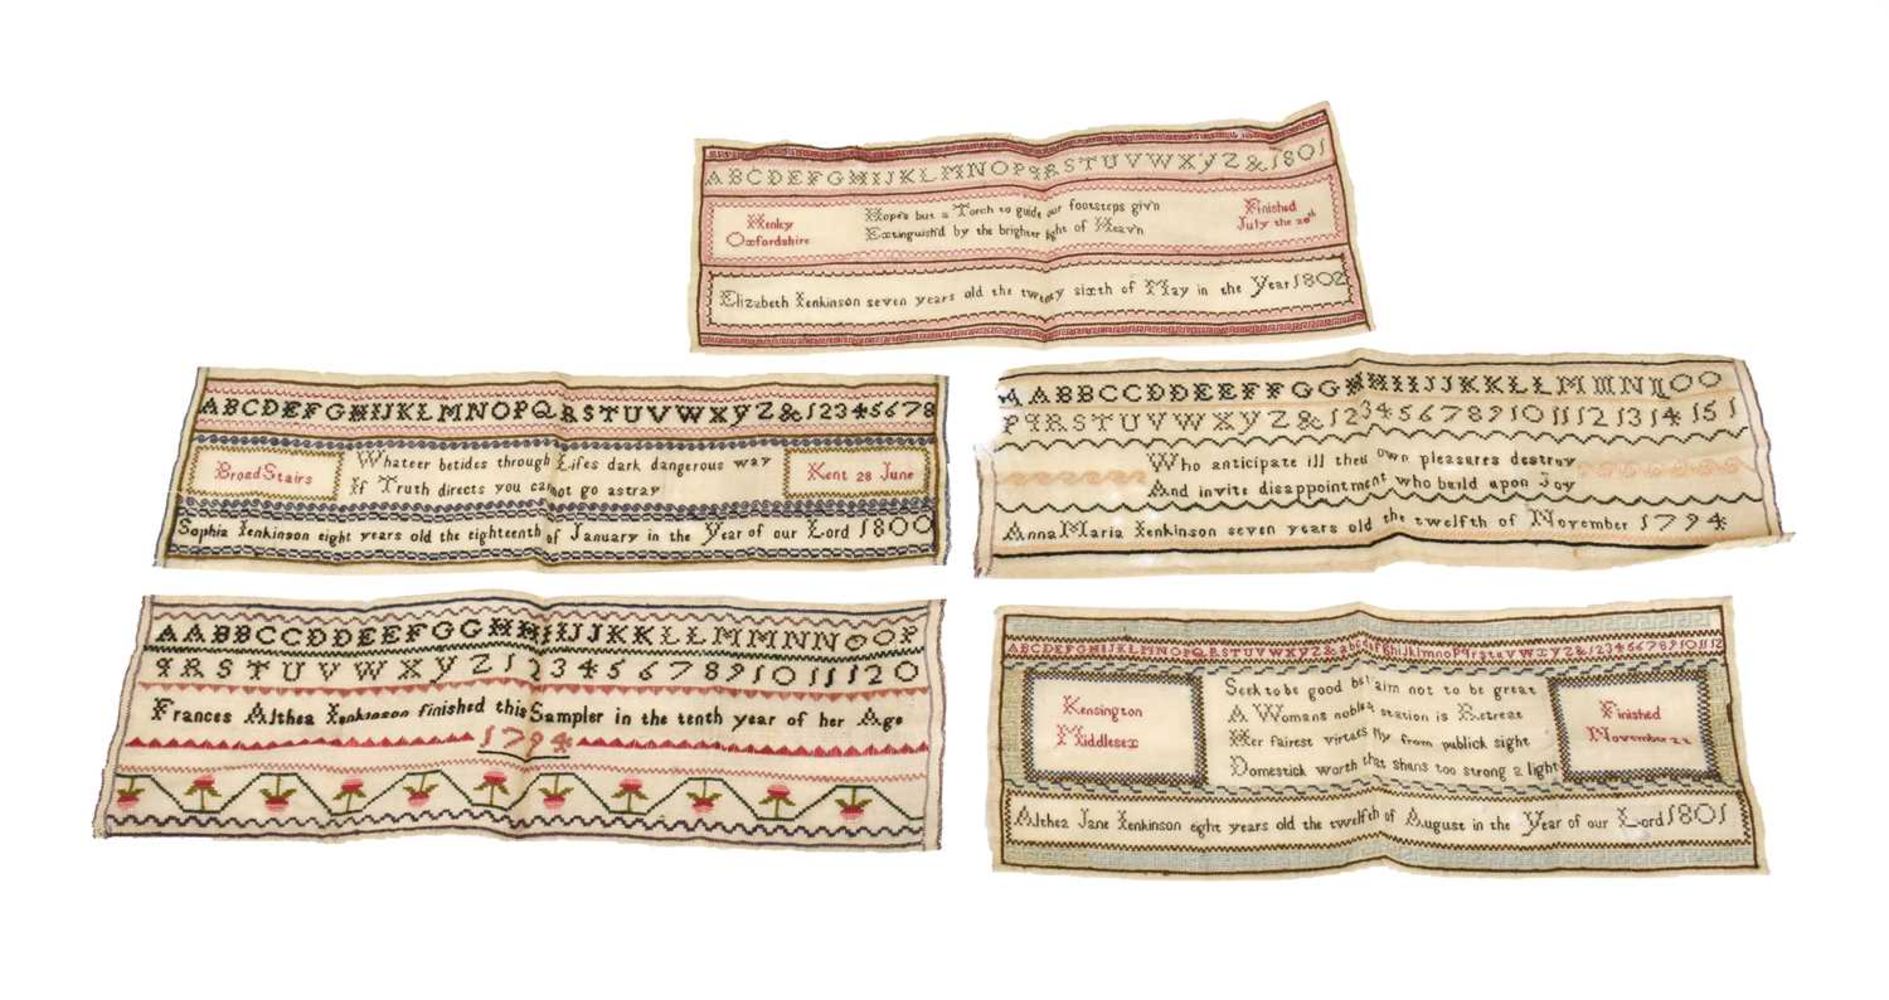 ABCDEFGHIJKLMNOPqRSTUVWXYZ&1801
Henley
Oxfordshire
Hope's but a Torch to guide our footsteps giv'n
Extinguish'd by the brighter light of Heav'n
Finished
July the 20th
Elizabeth Jenkinson seven years old the twenty sixth of May in the Year 1802
ABCDEFGHIJKLMNOPQRSTUVWXYZ&12345678
BroadStairs
Whateer betides through Lifes dark dangerous way
If Truth directs you cannot go astray
Kent 28 June
Sophia Jenkinson eight years old the eighteenth of January in the Year of our Lord 1800
AABBCCDDEEFFGGHHIIJJKKLLMMNNOO
PqRSTUVWXYZ&1234567891011121314151
Who anticipate ill their own pleasures destroy
And invite disappointment who build upon Joy
Anna Maria Jenkinson seven years old the twelfth of November 1794
AABBCCDDEEFGGHHIIJJKKLLMMNNOOP
qRSTUVWXYZ1234567891011120
Frances Althea Jenkinson finished this Sampler in the tenth year of her Age
1794
ABCDEFGHIJKLMNOPQRSTUVWXYZ&abcdefghijklmnopqrstuvwxyz&123456789101112
Kensington
Middlesex
Seek to be good but aim not to be great
A Womans noblest station is Retreat
Her fairest virtues fly from publick sight
Domestick worth that shuns too strong a light
Finished
November 22
Althea Jane Jenkinson eight years old the twelfth of August in the Year of our Lord 1801